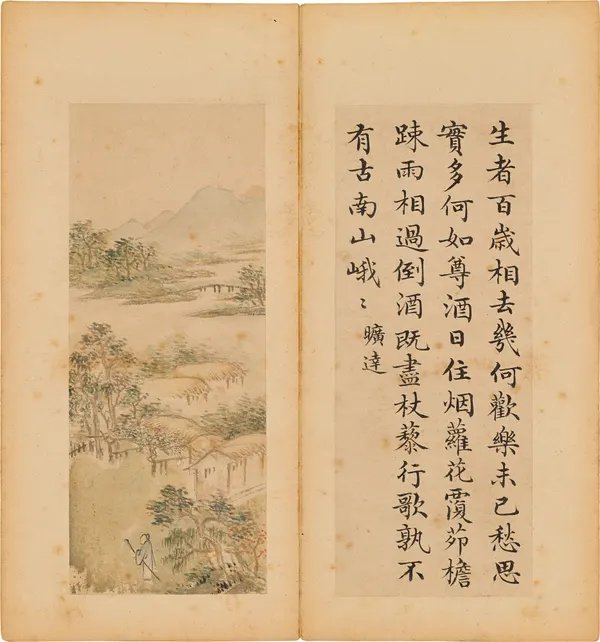 生者百歲相去幾何歡樂未已愁思
實多何如尊酒日住烟蘿花覆茆檐
踈雨相過倒酒既盡杖藜行歌孰不
有古南山峨〻 曠達